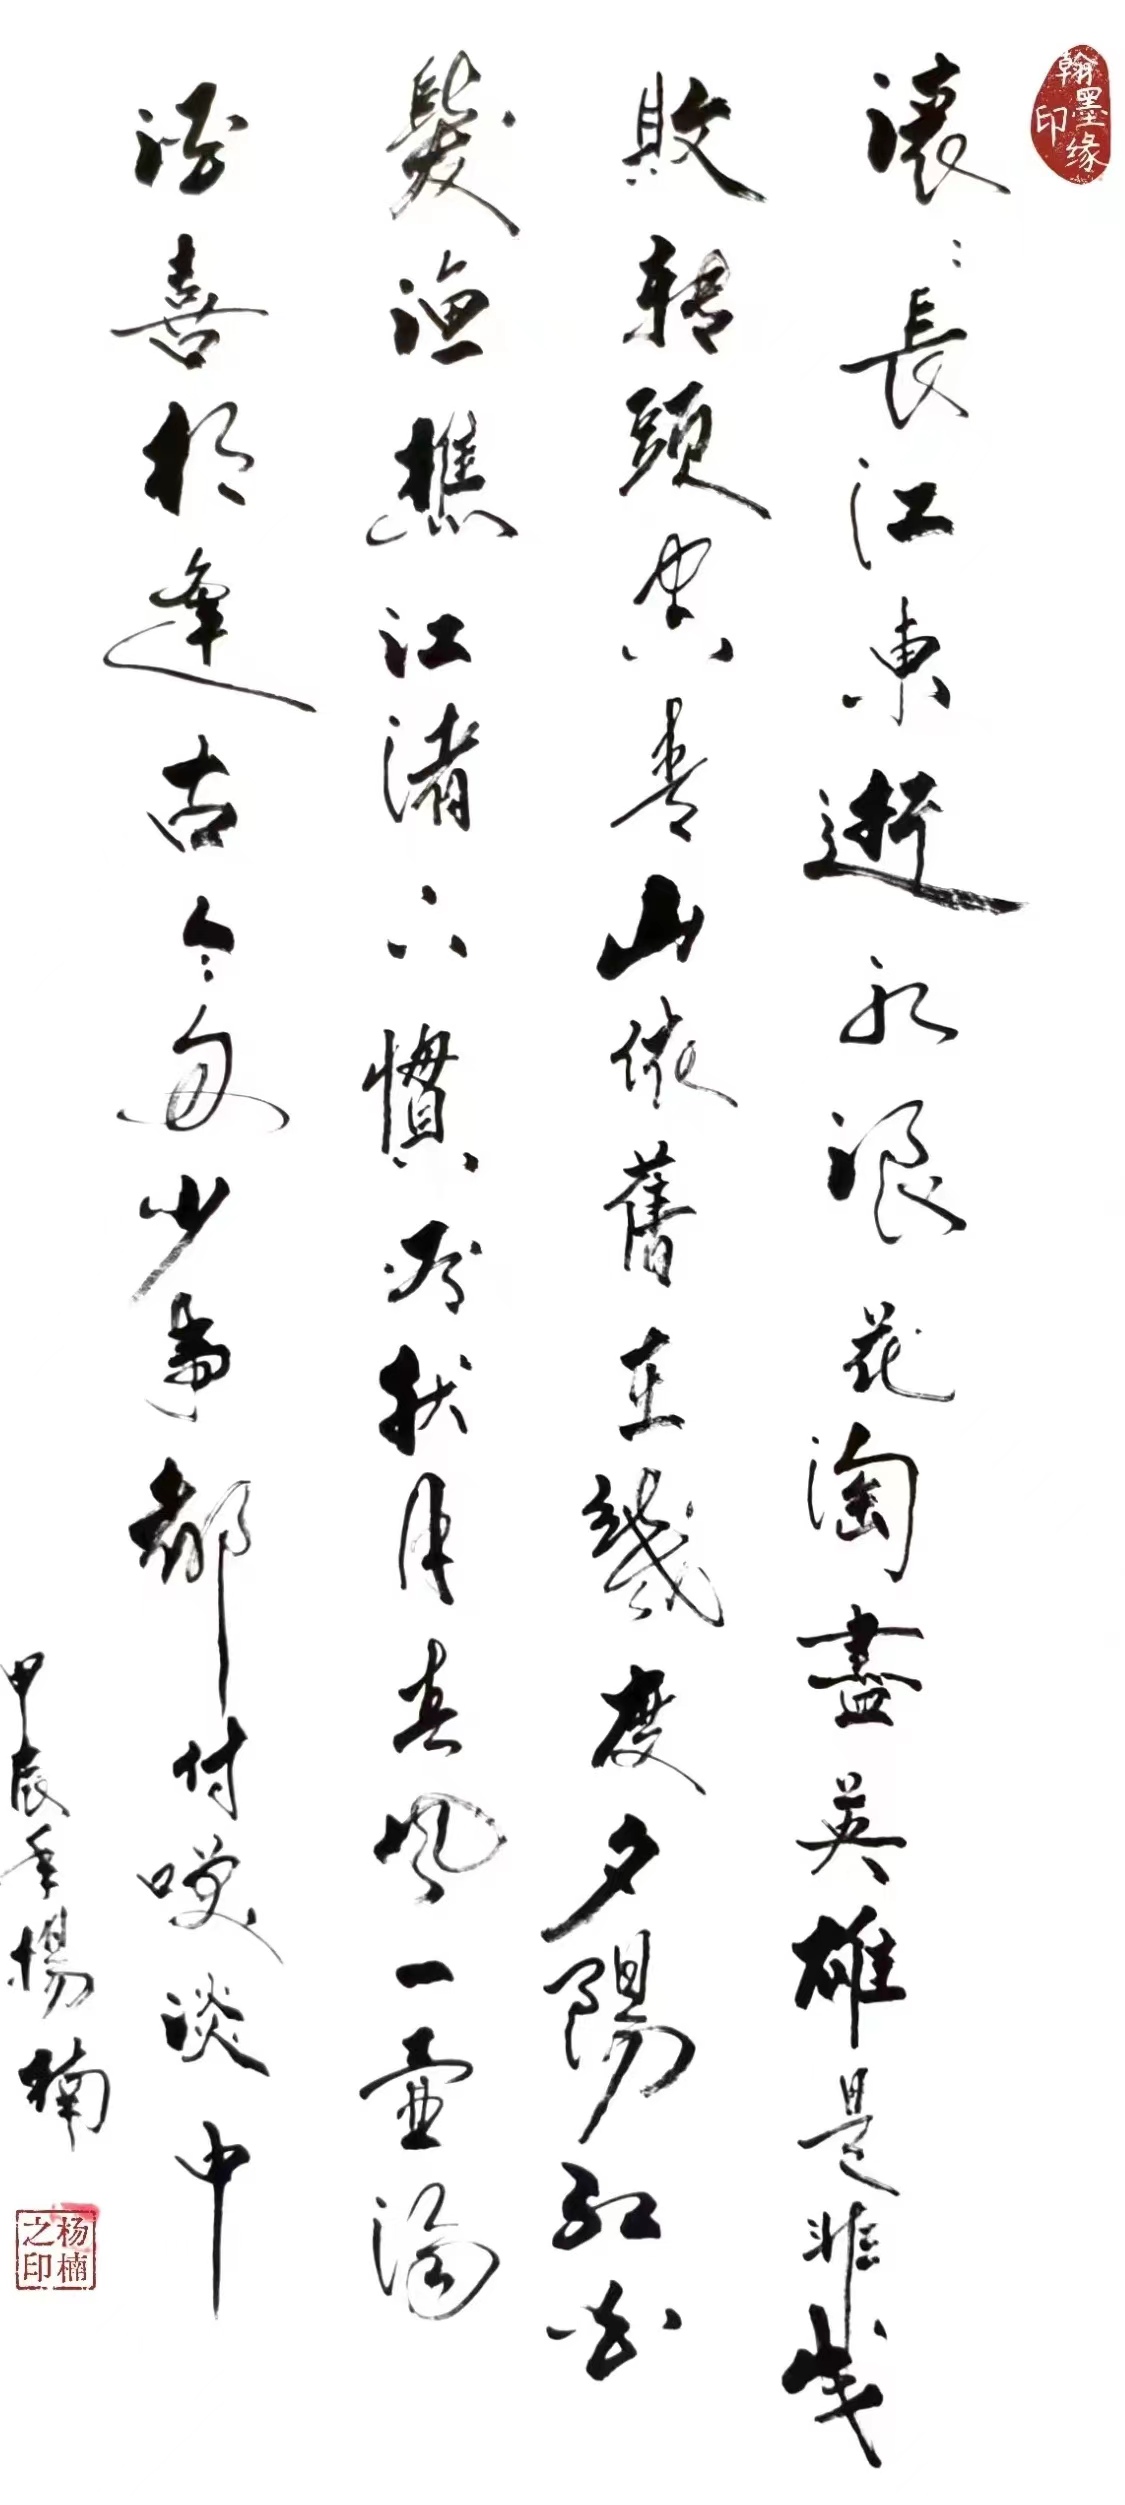 翰墨缘印
滚滚長江東逝水浪花淘盡英雄是非成
敗轉頭空青山依舊在幾度夕陽紅白
髮漁樵江渚上慣看秋月春風一壺濁
酒喜相逢古今多少事都付笑談中
甲辰年楊楠
杨楠之印